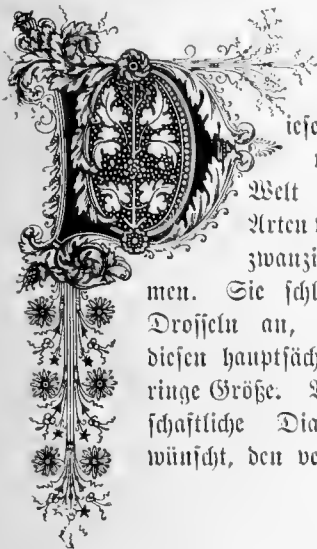 Diese
Welt
Arten
zwanzi
men. Sie schl
Drosseln an,
diesen hauptsäch
ringe Größe.
schaftliche Dia
wünscht, den ve